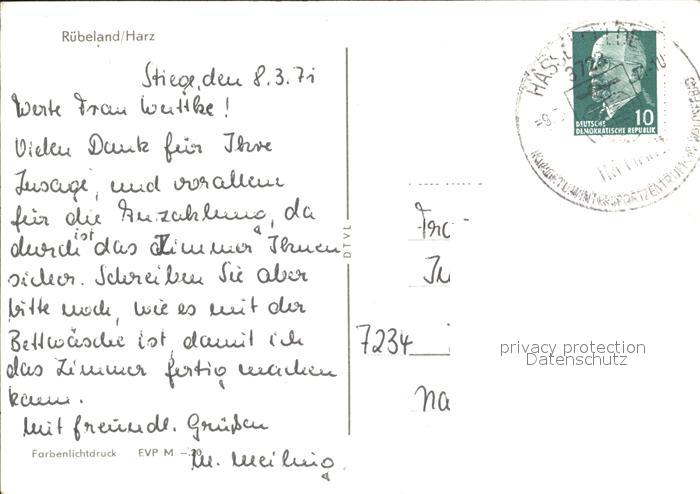 Rübeland/Harz
Stiege, den 8.3.71
Werte Frau Wuttke!
Vielen Dank für Ihre
Zusage, und vorallem
für die Anzahlung, da
durch ist das Zimmer Ihnen
sicher. Schreiben Sie aber
bitte noch, wie es mit der
Bettwäsche ist, damit ich
das Zimmer fertig machen
kann.
Mit freundl. Grüßen
M. Meiling.
Farbenlichtdruck EVP M –.20
DTVL
HASSELFELDE
3723
DEUTSCHE
DEMOKRATISCHE REPUBLIK 10
7234
privacy protection
Datenschutz